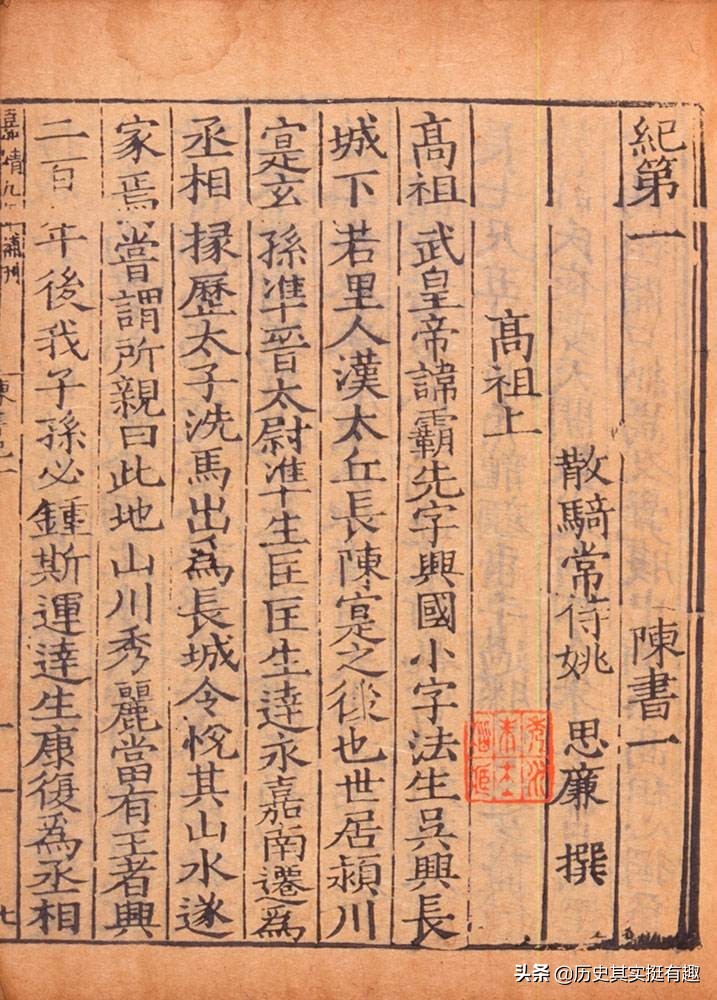 紀第一 陳書一
散騎常侍姚 思廉 撰
高祖上
高祖武皇帝諱霸先字興國小字法生吳興長
城下若里人漢太丘長陳寔之後也世居潁川
寔玄孫準晉太尉準生匡匡生達永嘉南遷為
丞相掾歷太子洗馬出為長城令悅其山水遂
家焉嘗謂所親曰此地山川秀麗當有王者興
二百年後我子孫必鍾斯運達生康復為丞相
嘉靖九年補刊
頭条 @历史其实挺有趣